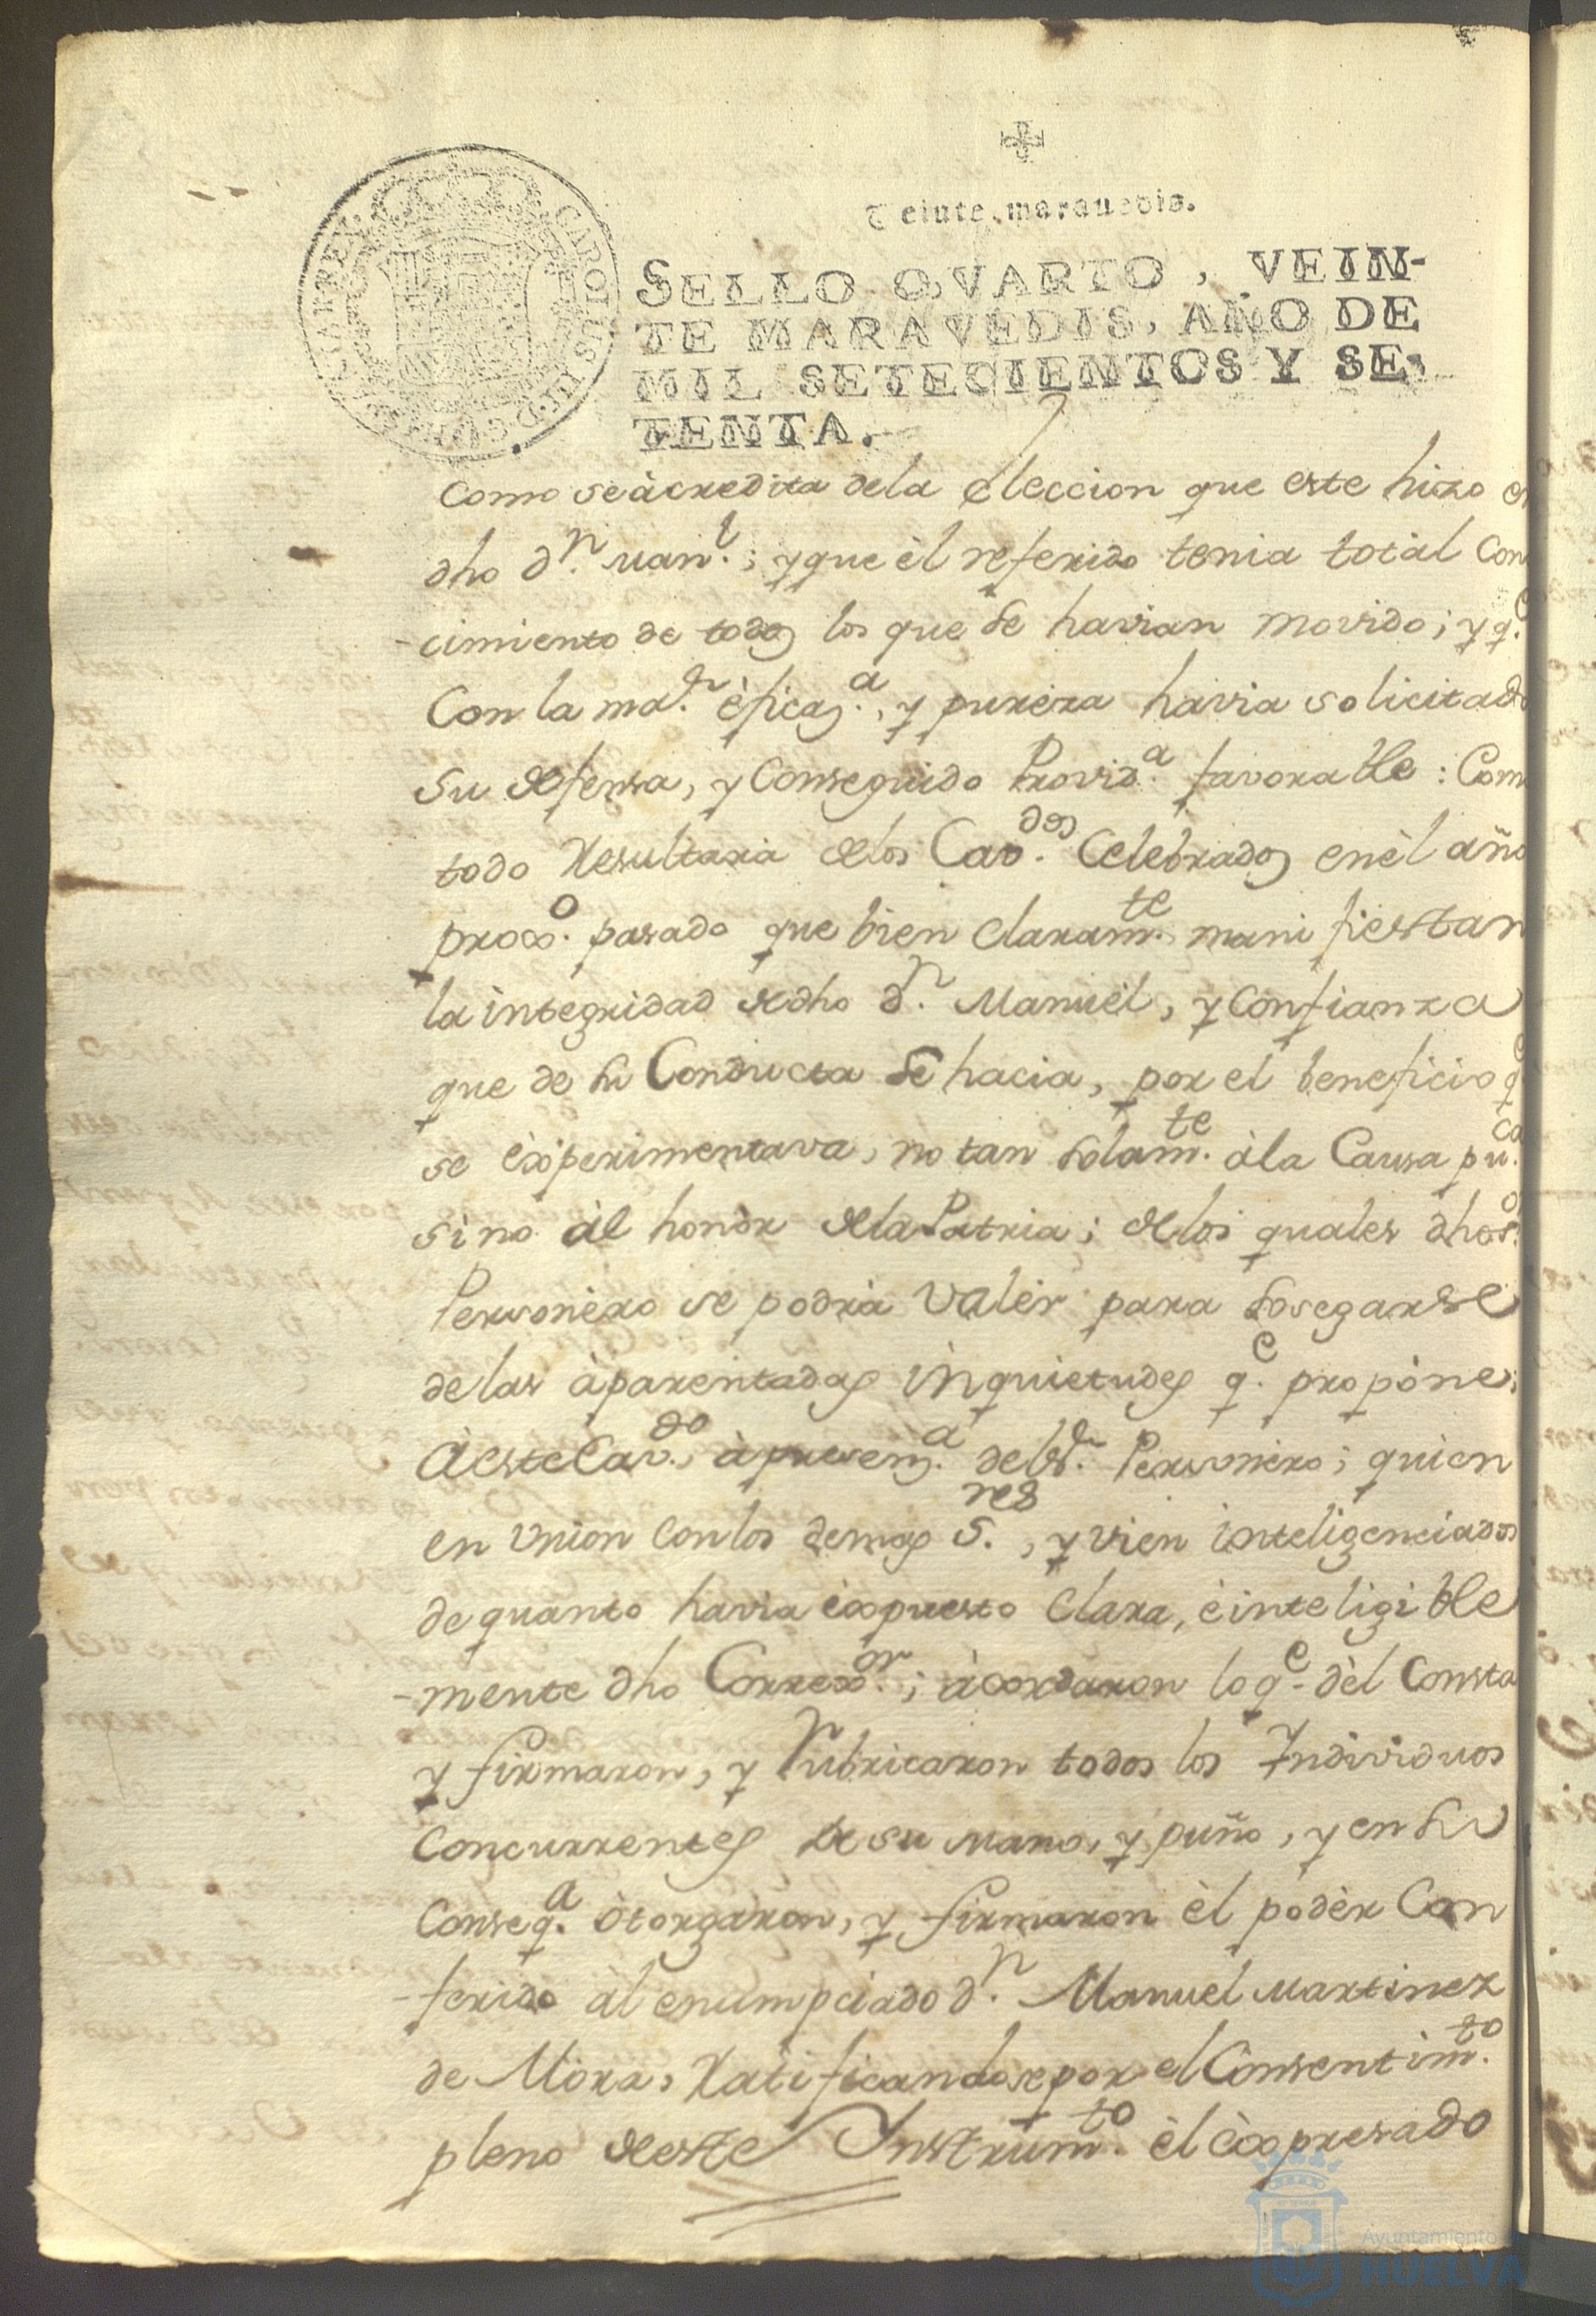 Veinte marauedis.
SELLO QVARTO, VEIN-
TE MARAVEDIS, AÑO DE
MIL SETECIENTOS Y SE-
TENTA.
CAROLUS III D. G. HISPANIAR REX
Como se àcredita dela eleccion que este hizo en
dho dn. Manl.; y que èl referido tenia totàl Cono
-cimiento de todos los que se havian movido; y qe.
Con la mar. èficaza., y pureza havia solicitado
su defensa, y Conseguido Provida. favorable: Como
todo Resultaria delos Cavdos. Celebrados en èl año
proxo. pasado que bien Claramte. manifiestan
la integridad dedho dn. Manuèl, y Confianza
que de su Conducta se hacia, por el beneficio qe
se èxperimentava, no tan solamte. àla Causa puca.
sino àl honòr dela Patria; delos quales dho sor.
Personèro se podrà valèr para sosegarse
de las àparentadas inquietudes qe. propòne;
À este Cavdo., à presenza. del sr. Personèro; quien
en union con los demas Sres., y vien inteligenciados
de quanto havia èxpuesto Clara, è inteligible
-mente dho Correxor.; àcordaron lo qe. dèl Consta
y firmaron, y Rubricaron todos los Individuos
Concurrentes de su mano, y puño, y en su
Conseqa. òtorgaron, y firmaron èl podèr Con
-ferido àl enumpciado dn. Manuel Martinez
de Mòra, Ratificandose por el Consentimto.
pleno deeste Instrumto. èl èxpresado
Ayuntamiento de
HUELVA